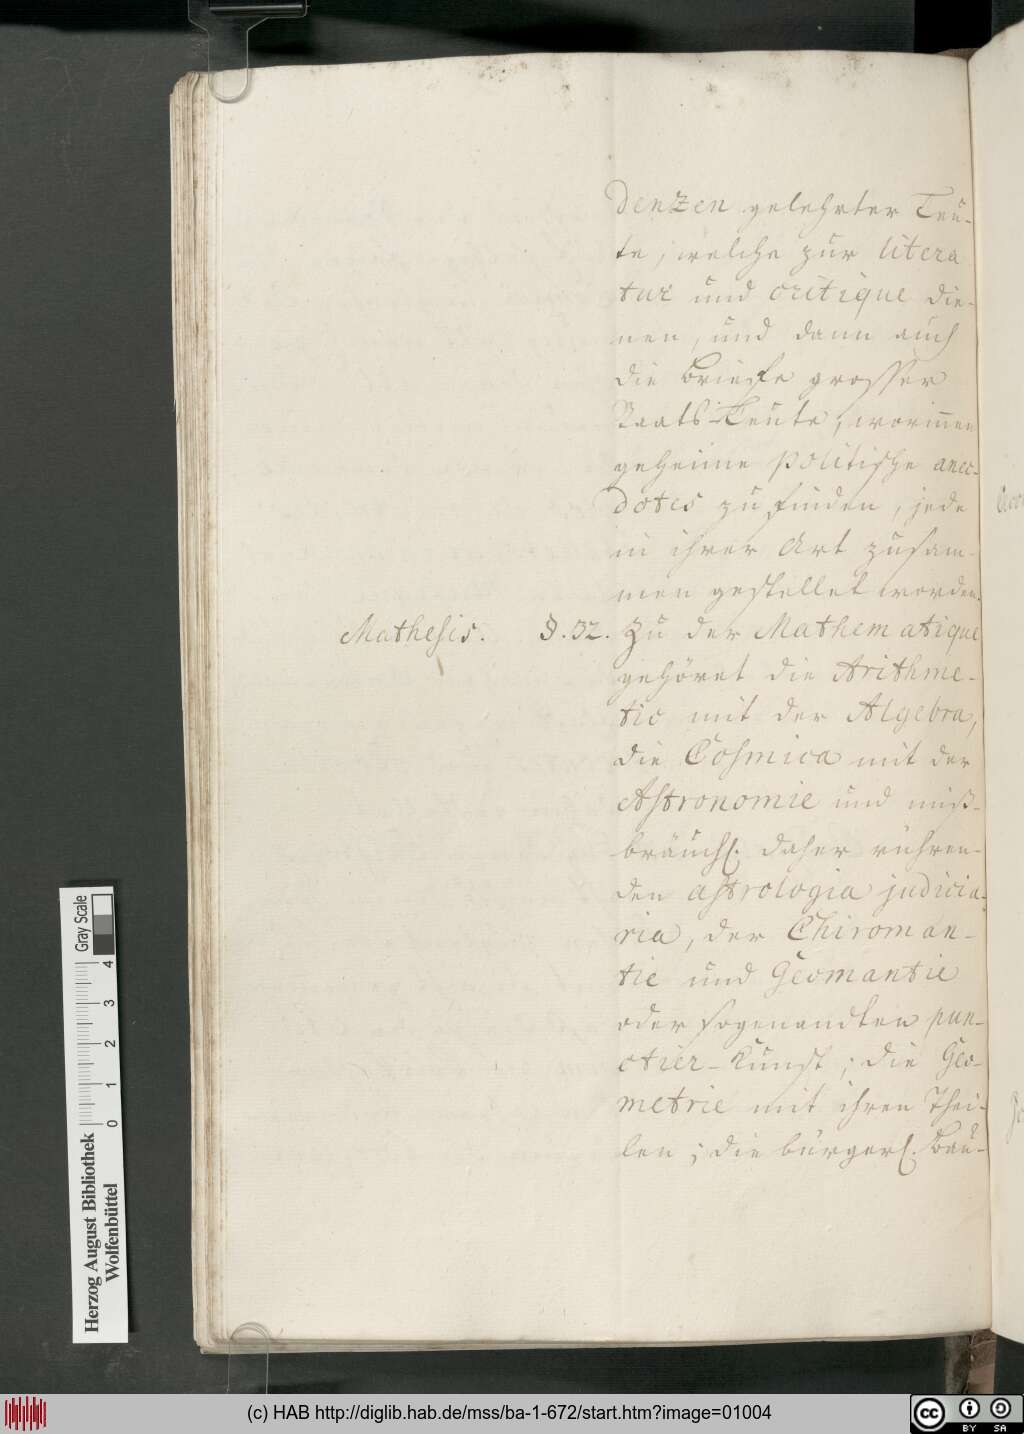 denzen gelehrter Leu-
te, welche zur litera
tur und critique die-
nen, und dann auch
die briefe grosser
Staats-Leute, worinnen
geheime politische anec-
dotes zu finden, jede
in ihrer Art zusam-
men gestellet worden.
Mathesis. §. 32. Zu der Mathematique
gehöret die Arithme-
tic mit der Algebra,
die Cosmica mit der
Astronomie und miß-
bräuchl. daher rühren-
den astrologia judicia-
ria, der Chiroman-
tie und Geomantie
oder sogenandten pun-
ctier-Kunst; die Geo-
metrie mit ihren Thei-
len; die bürgerl. Bau-
Gray Scale
0 1 2 3 4
Herzog August Bibliothek
Wolfenbüttel
(c) HAB http://diglib.hab.de/mss/ba-1-672/start.htm?image=01004
cc BY SA